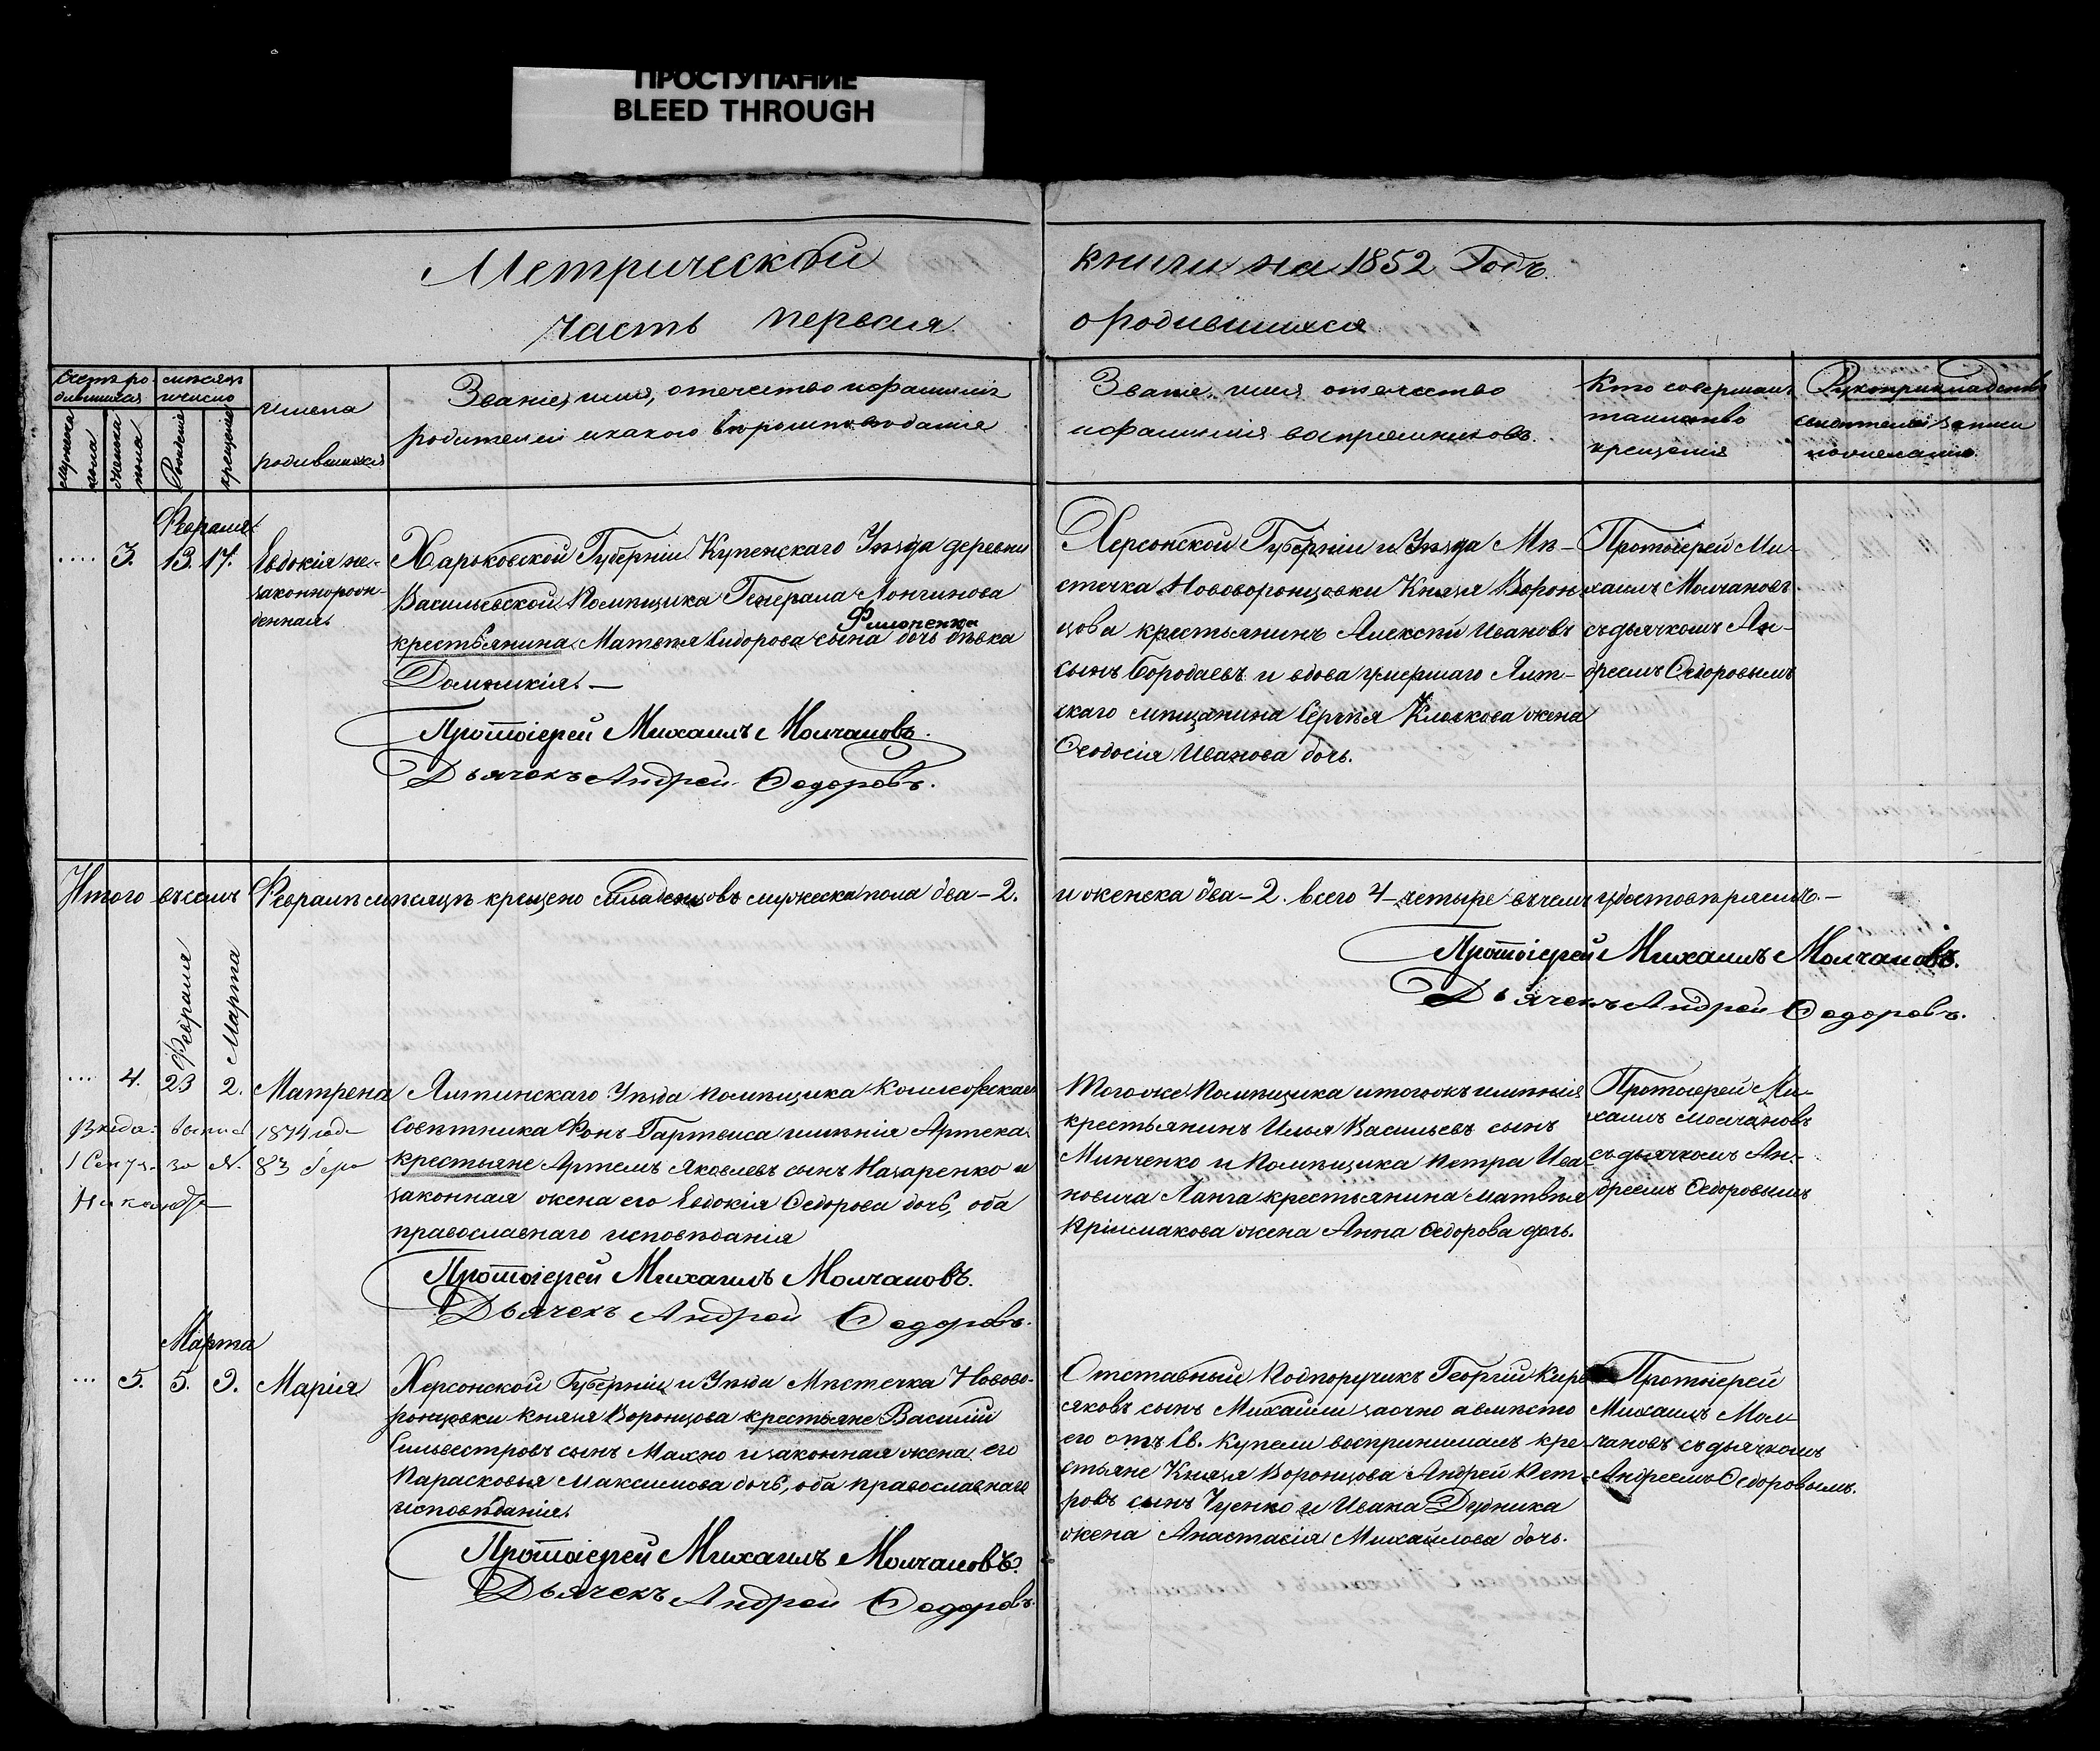 ПРОСТУПАНИЕ
BLEED THROUGH
Метрической книги на 1852 Годъ.
часть первая о родившихся
Счетъ ро-
дившихся
мужеска
пола
женска
пола
месяцъ
и число
Рожденія
крещенія
имена
родившихся
Званіе, имя, отечество и фамилія
родителей и какого вѣроисповѣданія
Званіе, имя отечество
и фамилія воспріемниковъ.
Кто совершалъ
таинство
крещенія
Рукоприкладство
свидетелей записи
по желанію
Февраля
3. 13. 17.
Евдокія не-
законнорож-
денная.
Харьковской Губерніи Купенскаго Уѣзда деревни
Васильевской Помѣщика Генерала Лонгинова
Филоненка
крестьянина Матвѣя Сидорова сына дочь дѣвка
Домникія. —
Протоіерей Михаилъ Молчановъ.
Дьячекъ Андрей Ѳедоровъ.
Херсонской Губерніи и Уѣзда Мѣ-
стечка Нововоронцовки Князя Ворон-
цова крестьянинъ Алексѣй Ивановъ
сынъ Бородаевъ и вдова умершаго Ялт-
скаго мѣщанина Сергѣя Клокова жена
Ѳеодосія Иванова дочь.
Протоіерей Ми-
хаилъ Молчановъ
съ дьячкомъ Ан-
дреемъ Ѳедоровымъ
Итого въ семъ Февралѣ мѣсяцѣ крещено младенцовъ мужеска пола два - 2. и женска два - 2. всего 4 - четыре въ чемъ удостовѣряемъ. -
Протоіерей Михаилъ Молчановъ.
Дьячекъ Андрей Ѳедоровъ.
Февраля
Марта
4. 23 2. Матрена
1874 года
1 Сент.
за N. 83
Ялтинскаго Уѣзда помѣщика Коллежскаго
Совѣтника Фонъ-Гартвиса имѣнія Артека
крестьяне Артемъ Яковлевъ сынъ Назаренко и
законная жена его Евдокія Ѳедорова дочь, оба
православнаго исповѣданія
Протоіерей Михаилъ Молчановъ.
Дьячекъ Андрей Ѳедоровъ.
Того же Помѣщика и того жъ имѣнія
крестьянинъ Илья Васильевъ сынъ
Минченко и Помѣщика Петра Ива-
новича Ланга крестьянина Матвѣя
жена Анна Ѳедорова дочь.
Протоіерей Ми-
хаилъ Молчановъ
съ дьячкомъ Ан-
дреемъ Ѳедоровымъ
Марта
5. 5. 9. Марія
Херсонской Губерніи и Уѣзда Мѣстечка Новово-
ронцовки Князя Воронцова крестьяне Василій
Сильвестровъ сынъ Махно и законная жена его
Парасковья Максимова дочь, оба православнаго
исповѣданія.
Протоіерей Михаилъ Молчановъ.
Дьячекъ Андрей Ѳедоровъ.
Отставный Подпоручикъ Георгій Кирь-
яковъ сынъ Михайли заочно а вмѣсто
его отъ Св. Купели воспринималъ кре-
стьяне Князя Воронцова Андрей Пет-
ровъ сынъ Гусенко и Ивана Дудника
жена Анастасія Михайлова дочь.
Протоіерей
Михаилъ Мол-
чановъ съ дьячкомъ
Андреемъ Ѳедоровымъ.